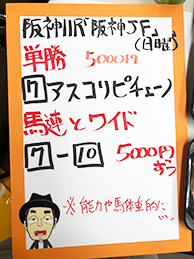 阪神11R 阪神JF(日曜)
単勝 5000円
7 アスコリピチェーノ
馬連とワイド
7-10 5000円
ずつ
※能力や馬体重的に…